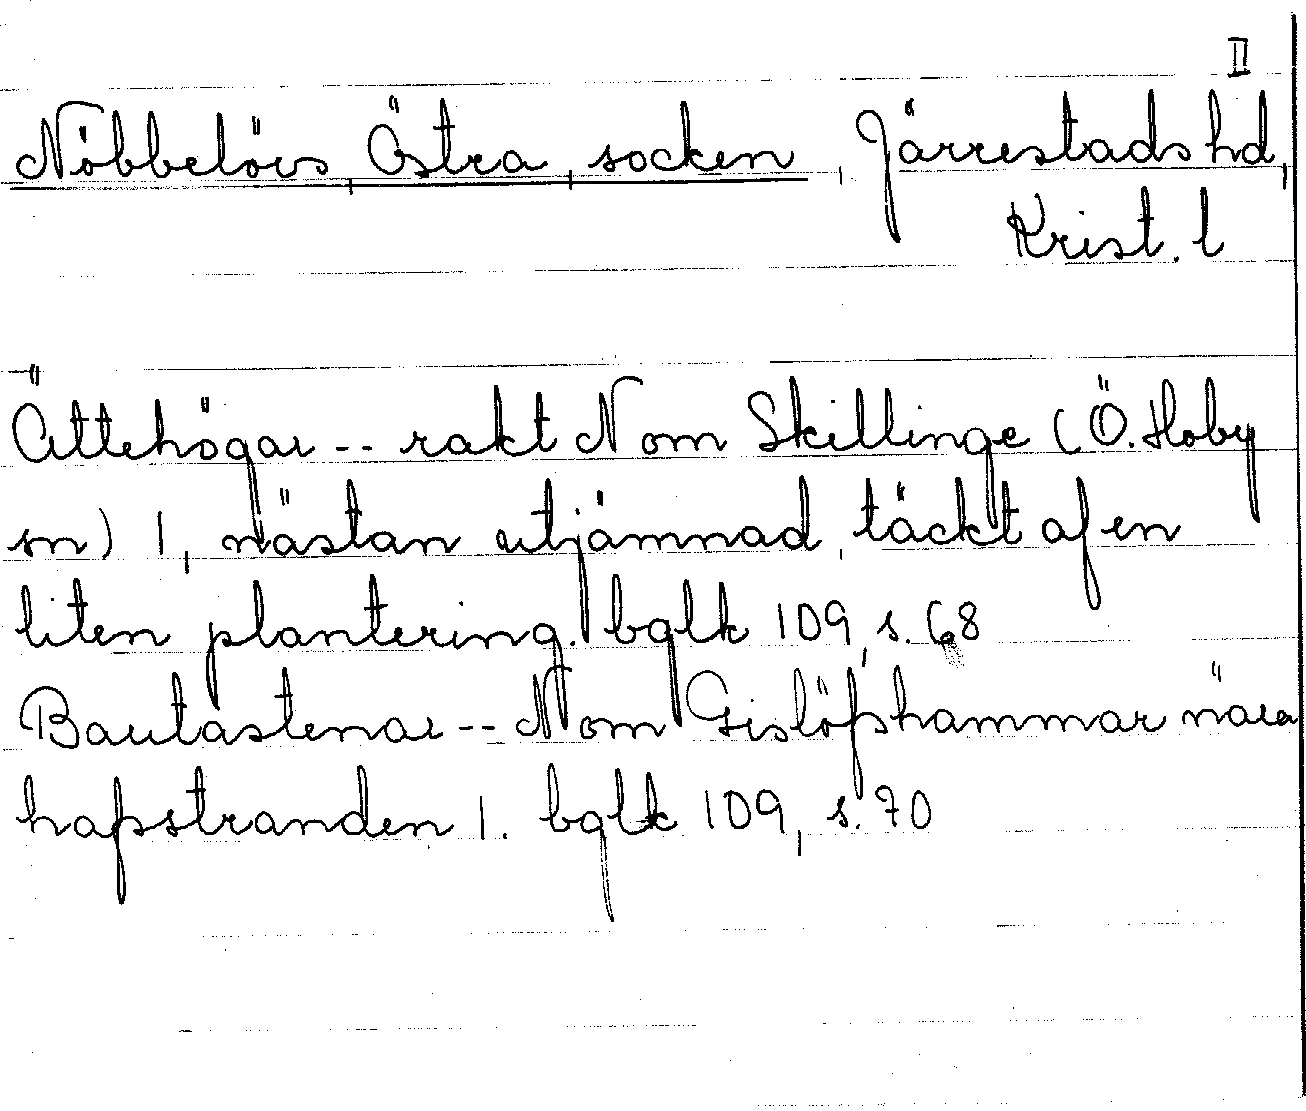 II
Nöbbelövs Östra socken, Järrestads hd,
Krist. l
Ättehögar -- rakt N om Skillinge (Ö. Hoby
sn) 1, nästan utjämnad, täckt af en
liten plantering. bglk 109, s. 68
Bautastenar -- N om Gislöfshammar nära
hafstranden 1. bglk 109, s. 70